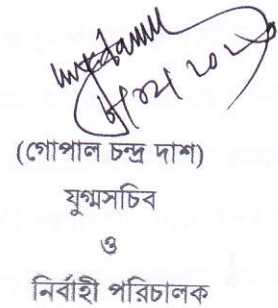 (গোপাল চন্দ্র দাশ)
যুগ্মসচিব
ও
নির্বাহী পরিচালক